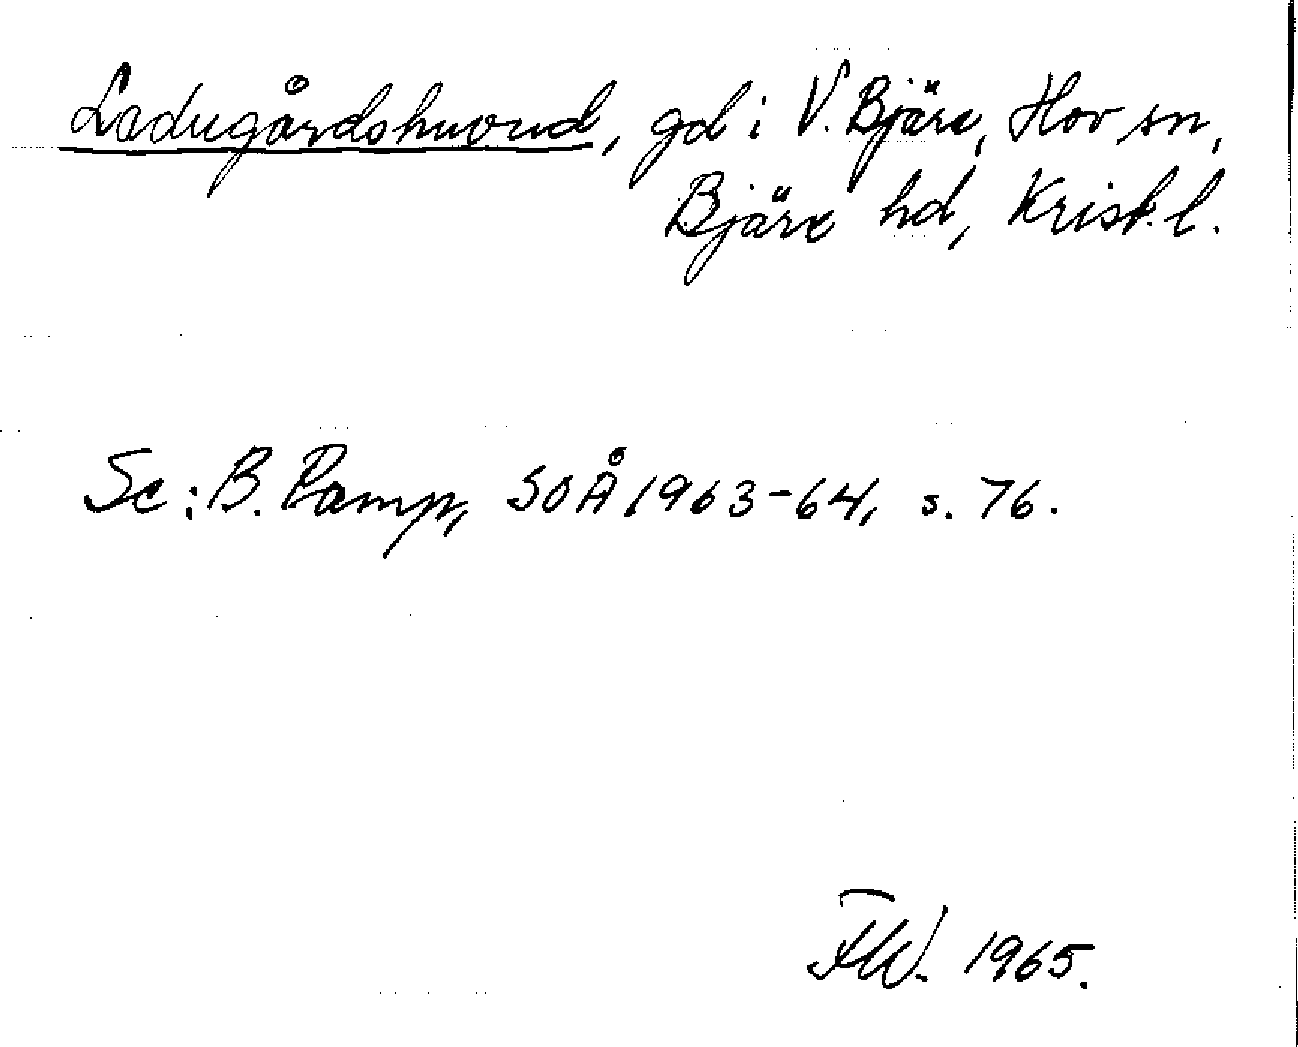 Ladugårdshuvud, gd i V. Bjäre, Hov sn,
Bjäre hd, Krist. l.
Se: B. Pamp, SOÅ 1963-64, s. 76.
1965.